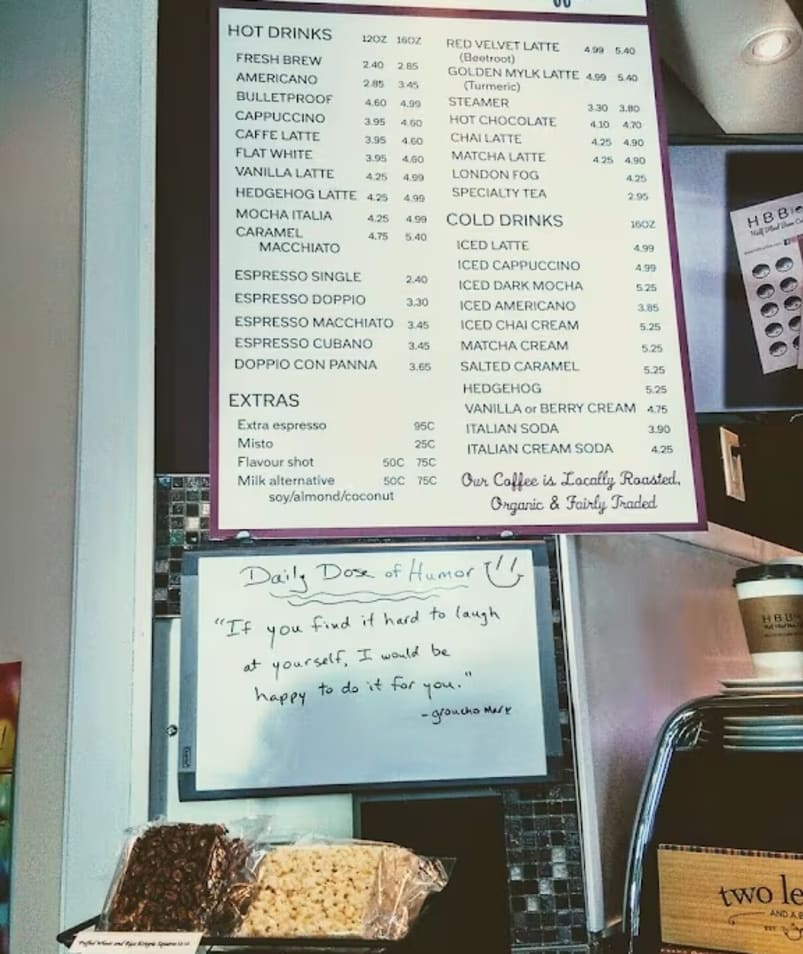 HOT DRINKS 12OZ 16OZ
FRESH BREW 2.40 2.85
AMERICANO 2.85 3.45
BULLETPROOF 4.60 4.99
CAPPUCCINO 3.95 4.60
CAFFE LATTE 3.95 4.60
FLAT WHITE 3.95 4.60
VANILLA LATTE 4.25 4.99
HEDGEHOG LATTE 4.25 4.99
MOCHA ITALIA 4.25 4.99
CARAMEL 4.75 5.40
MACCHIATO
ESPRESSO SINGLE 2.40
ESPRESSO DOPPIO 3.30
ESPRESSO MACCHIATO 3.45
ESPRESSO CUBANO 3.45
DOPPIO CON PANNA 3.65
EXTRAS
Extra espresso 95C
Misto 25C
Flavour shot 50C 75C
Milk alternative 50C 75C
soy/almond/coconut
RED VELVET LATTE 4.99 5.40
(Beetroot)
GOLDEN MYLK LATTE 4.99 5.40
(Turmeric)
STEAMER 3.30 3.80
HOT CHOCOLATE 4.10 4.70
CHAI LATTE 4.25 4.90
MATCHA LATTE 4.25 4.90
LONDON FOG 4.25
SPECIALTY TEA 2.95
COLD DRINKS 16OZ
ICED LATTE 4.99
ICED CAPPUCCINO 4.99
ICED DARK MOCHA 5.25
ICED AMERICANO 3.85
ICED CHAI CREAM 5.25
MATCHA CREAM 5.25
SALTED CARAMEL 5.25
HEDGEHOG 5.25
VANILLA or BERRY CREAM 4.75
ITALIAN SODA 3.90
ITALIAN CREAM SODA 4.25
Our Coffee is Locally Roasted,
Organic & Fairly Traded
Daily Dose of Humor
"If you find it hard to laugh
at yourself, I would be
happy to do it for you."
-groucho Marx
HBB
HBB
Puffed Wheat and Rice Krispie Squares
two le
AND A B